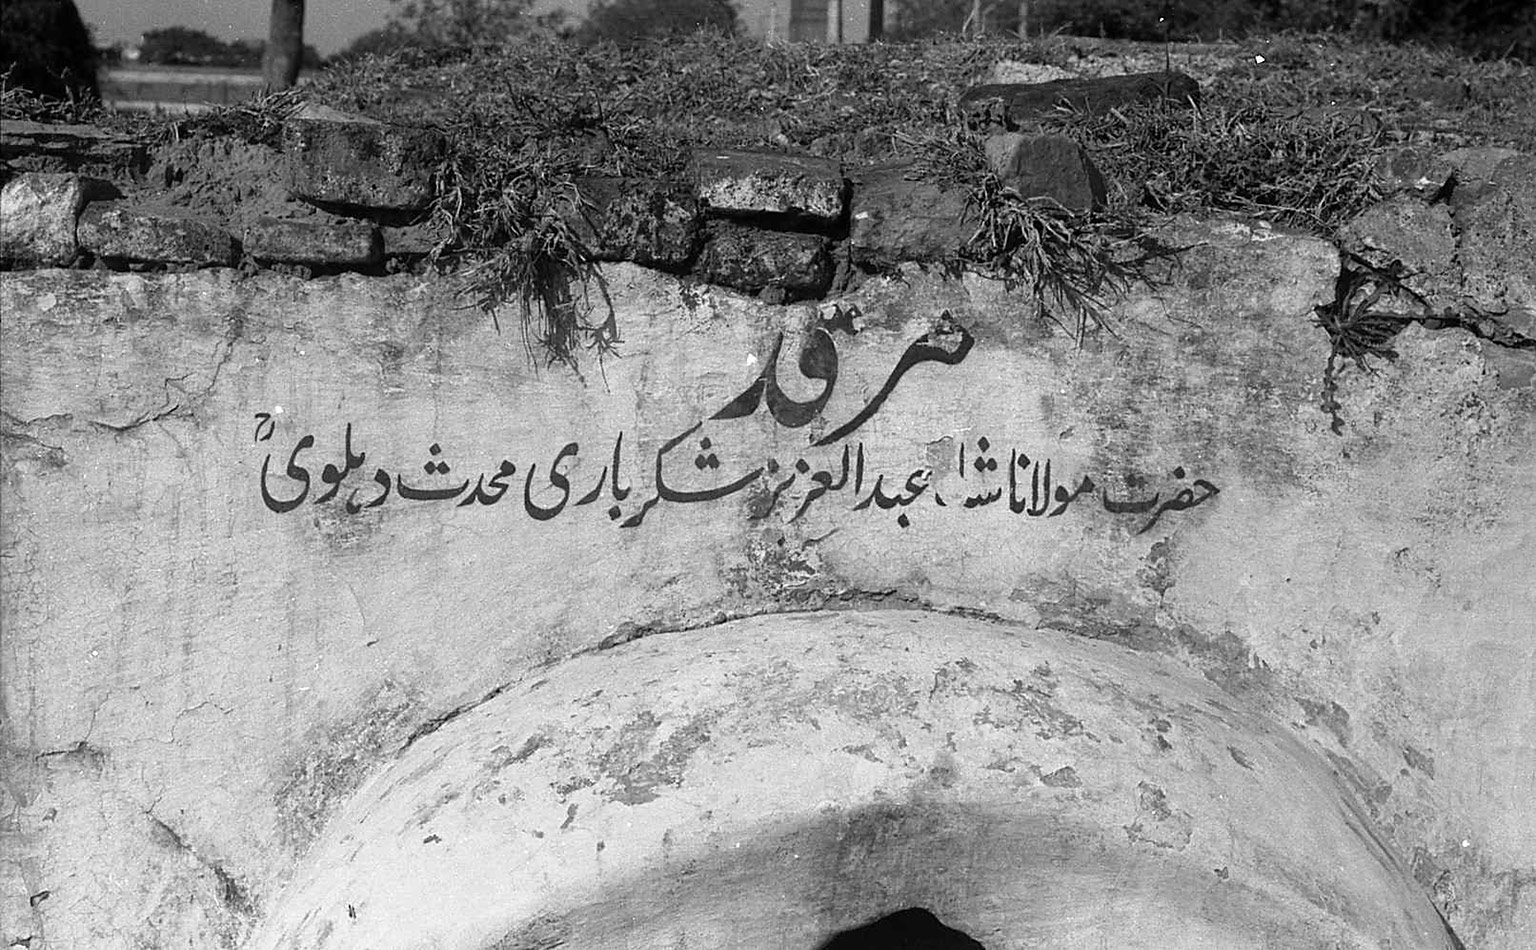 مرقد
حضرت مولانا شاہ عبدالعزیز شکر باری محدث دہلویؒ